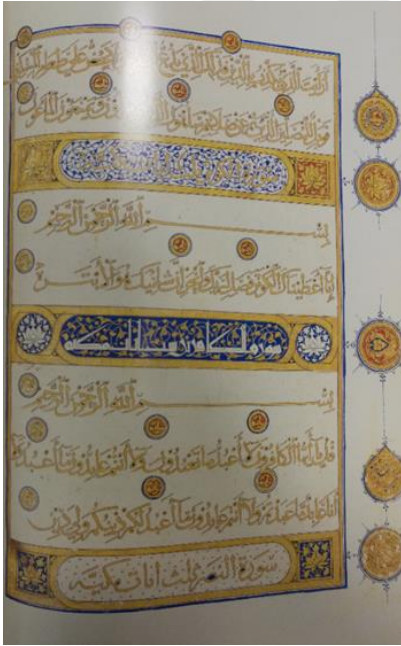 أرأيت الذي يكذب بالدين فذلك الذي يدع اليتيم ولا يحض على طعام المسكين
فويل للمصلين الذين هم عن صلاتهم ساهون الذين هم يراؤن ويمنعون الماعون
سورة الكوثر
بسم الله الرحمن الرحيم
إنا أعطيناك الكوثر فصل لربك وانحر إن شانئك هو الأبتر
سورة الكافرون ست ايات مكية
بسم الله الرحمن الرحيم
قل يا أيها الكافرون لا أعبد ما تعبدون ولا أنتم عابدون ما أعبد ولا
أنا عابد ما عبدتم ولا أنتم عابدون ما أعبد لكم دينكم ولي دين
سورة النصر ثلث ايات مكية